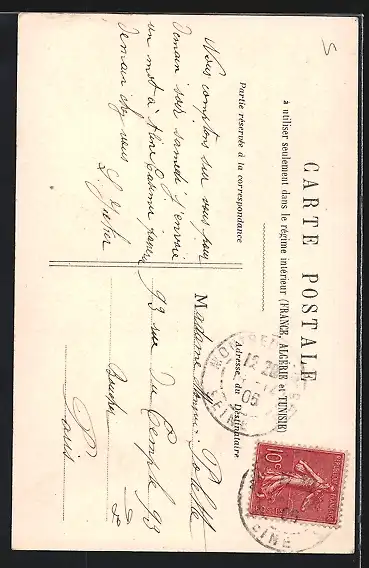 CARTE POSTALE
à utiliser seulement dans le régime intérieur (FRANCE, ALGÉRIE et TUNISIE)
Partie réservée à la correspondance
Adresse du Destinataire
Nous comptons sur vous pour
demain soir samedi j'envoie
un mot à
demain chez vous
Madame
93 rue du Temple 93
Paris
15
06
SEINE
10c
SEINE
5